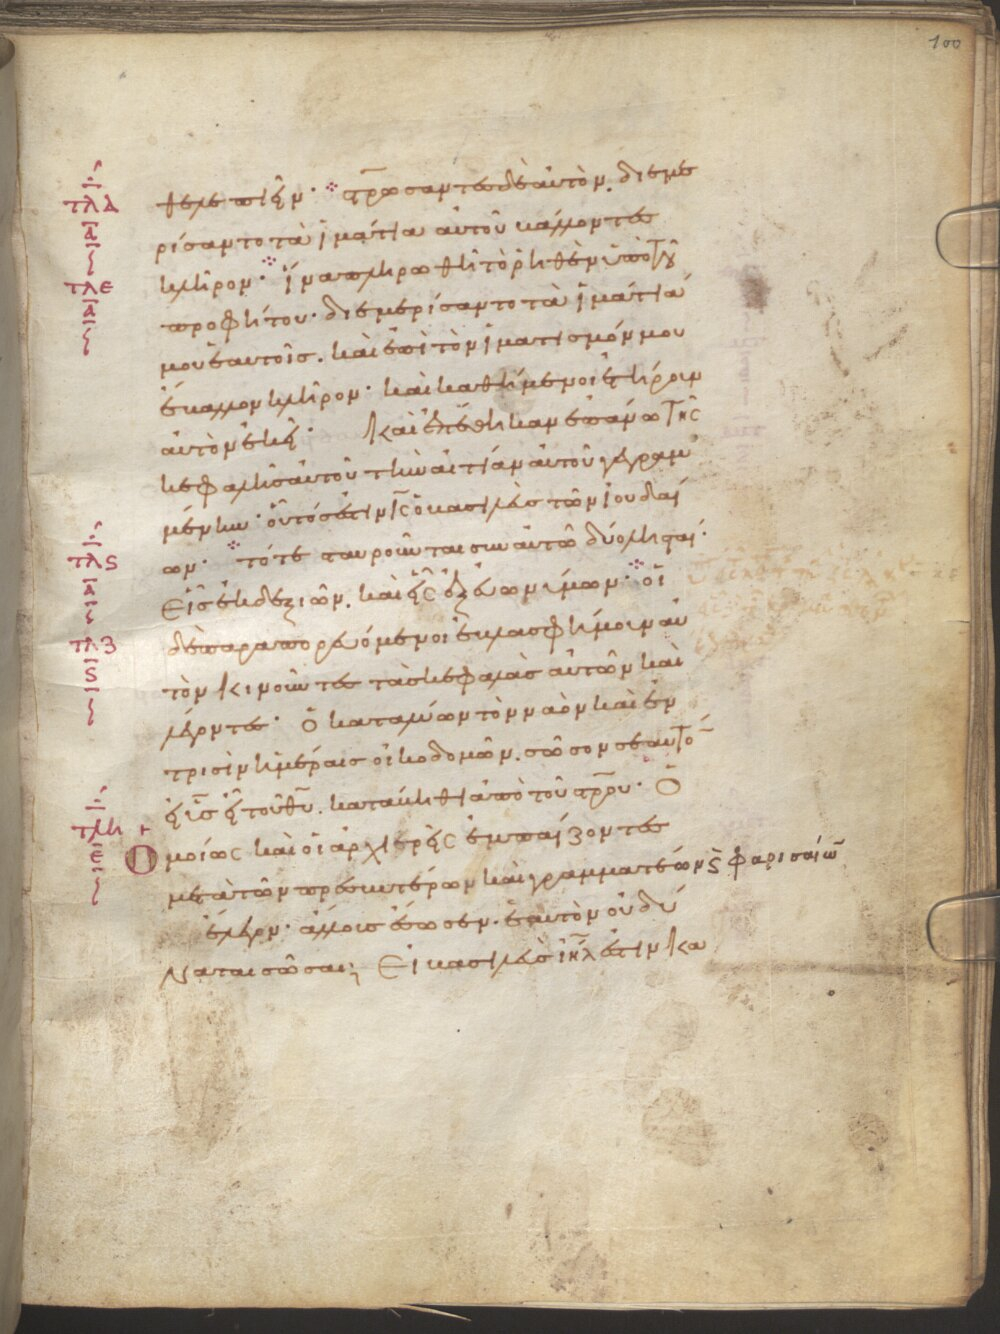 100
θελε πιεῖν· στρωσαντες δὲ αὐτὸν. διεμε
ρίσαντο τὰ ἱμάτια αὐτοῦ βάλλοντες
κλῆρον· ἵνα πληρωθῆ τὸ ῥηθὲν ὑπὸ τοῦ
προφήτου· διεμερίσαντο τὰ ἱμάτιά
μου ἑαυτοῖς. καὶ ἐπὶ τὸν ἱματισμόν μου
ἔβαλλον κλῆρον· καὶ καθήμενοι ἐτήρουν
αὐτὸν ἐκεῖ· Καὶ ἐπέθηκαν ἐπάνω τῆς
κεφαλῆς αὐτοῦ τὴν αἰτίαν αὐτοῦ γεγραμ
μένην· οὗτός ἐστιν ις ὁ βασιλεὺς τῶν ἰουδαί
ων· τότε σταυροῦνται σὺν αὐτῶ δύο λησταί·
Εἷς ἐκ δεξιῶν. καὶ εἷς ἐξ εὐωνύμων· οἱ
δὲ παραπορευόμενοι ἐβλασφήμουν αὐ
τὸν κινοῦντες τὰς κεφαλὰς αὐτῶν καὶ
λέγοντες· Ὁ καταλύων τὸν ναὸν καὶ ἐν
τρισὶν ἡμέραις οἰκοδομῶν. σῶσον σεαυτόν
εἰ υς εἶ τοῦ θυ. κατάβηθι ἀπὸ τοῦ στρου· Ὁ
μοίως καὶ οἱ ἀρχιερεῖς ἐμπαίζοντες
μετὰ τῶν πρεσβυτέρων καὶ γραμματέων ϗ φαρισαίων
ἔλεγον· ἄλλους ἔσωσεν· ἑαυτὸν οὐ δύ
Ναται σῶσαι; Εἰ βασιλεὺς ιηλ ἐστιν κα
τλδ
α
τλε
α
τλς
α
τλζ
ς
τλη
ε